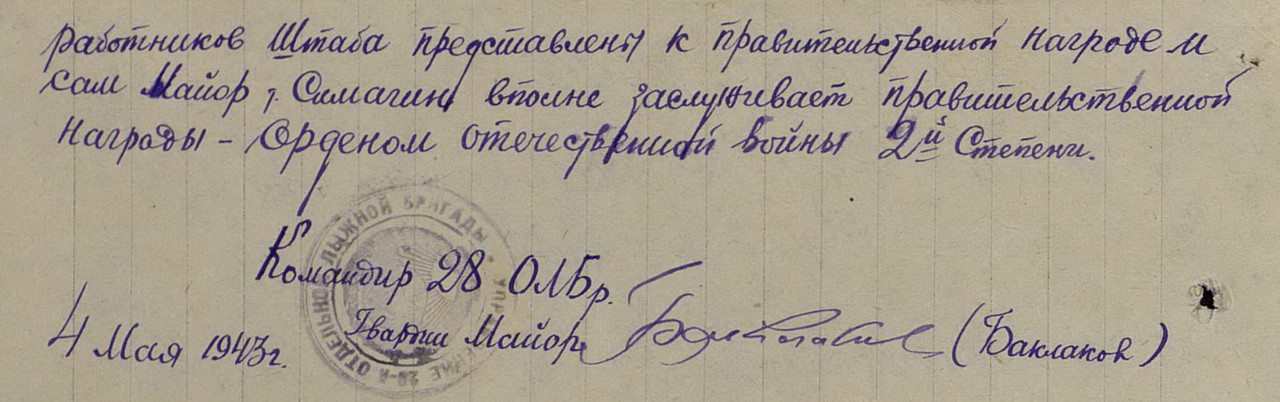 работников Штаба представлены к правительственной награде и
сам Майор т. Симагин вполне заслуживает правительственной
награды - Орденом отечественной войны 2й Степени.
Командир 28 ОЛБр.
Гвардии Майор (Баклаков)
4 Мая 1943г.
УПРАВЛЕНИЕ 28-Й ОТДЕЛЬНОЙ ЛЫЖНОЙ БРИГАДЫ